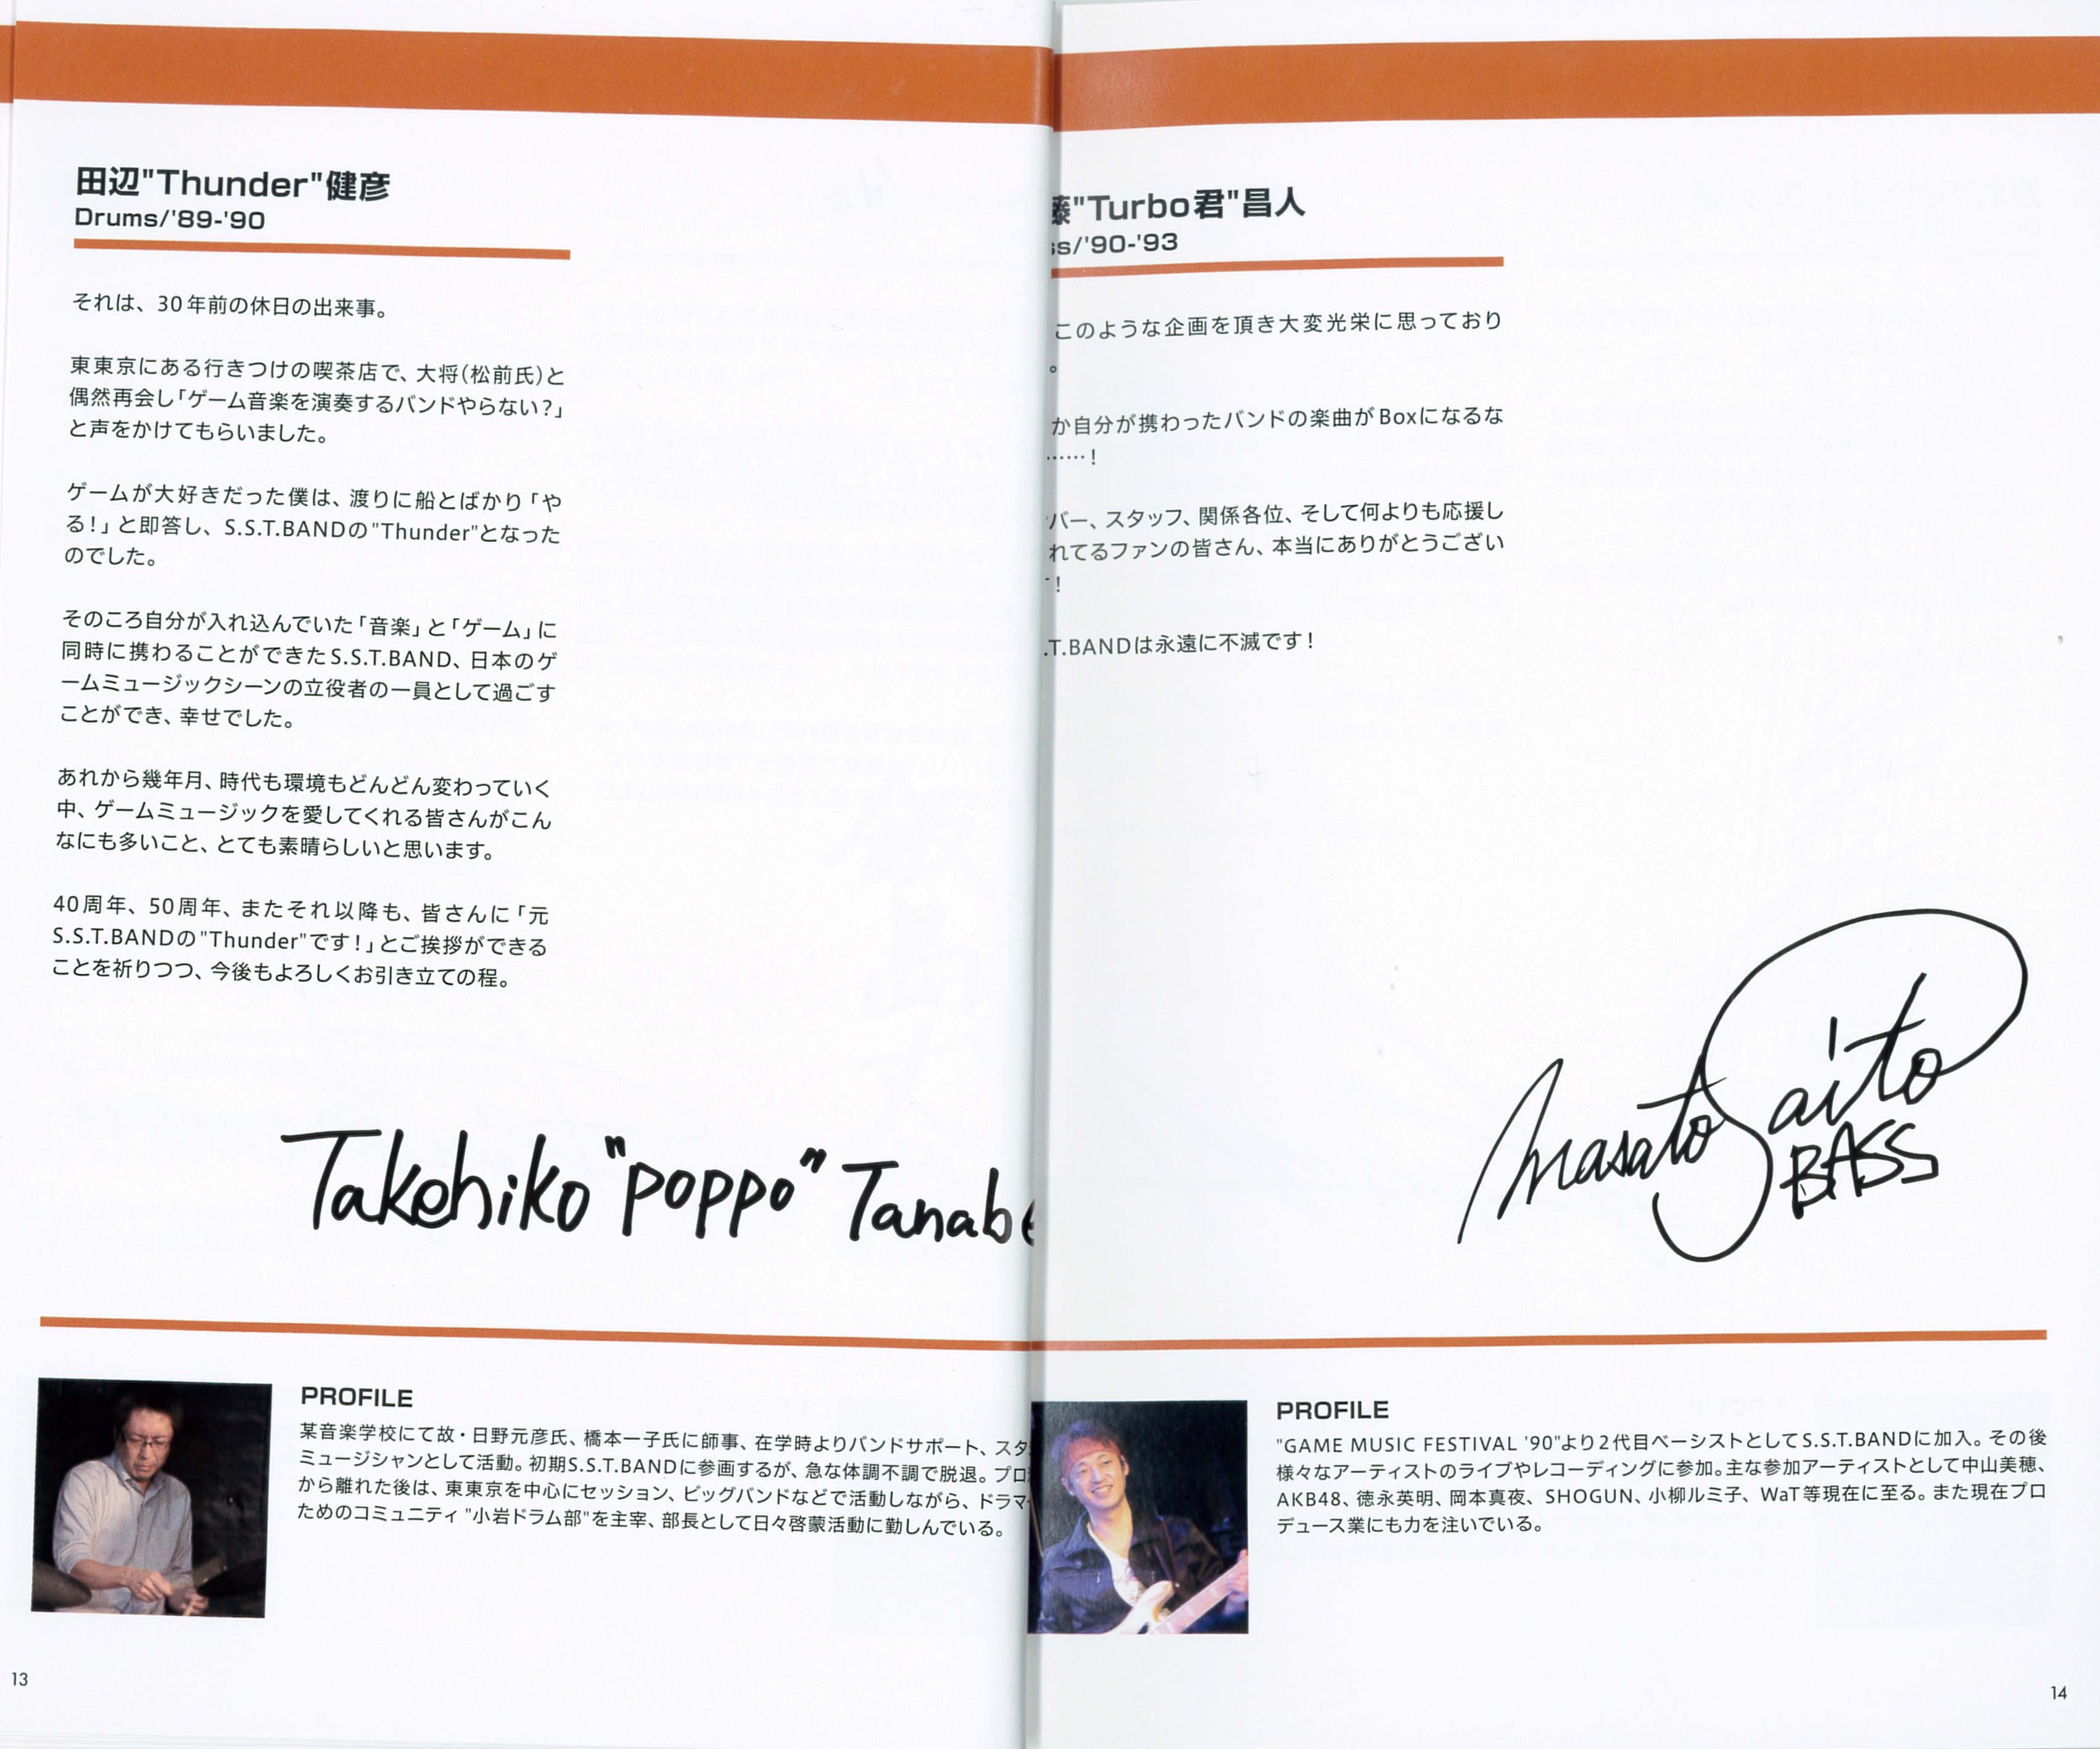 田辺"Thunder"健彦
Drums/'89-'90
それは、30年前の休日の出来事。
東東京にある行きつけの喫茶店で、大将(松前氏)と
偶然再会し「ゲーム音楽を演奏するバンドやらない?」
と声をかけてもらいました。
ゲームが大好きだった僕は、渡りに船とばかり「や
る!」と即答し、S.S.T.BANDの"Thunder"となった
のでした。
そのころ自分が入れ込んでいた「音楽」と「ゲーム」に
同時に携わることができたS.S.T.BAND、日本のゲ
ームミュージックシーンの立役者の一員として過ごす
ことができ、幸せでした。
あれから幾年月、時代も環境もどんどん変わっていく
中、ゲームミュージックを愛してくれる皆さんがこん
なにも多いこと、とても素晴らしいと思います。
40周年、50周年、またそれ以降も、皆さんに「元
S.S.T.BANDの"Thunder"です!」とご挨拶ができる
ことを祈りつつ、今後もよろしくお引き立ての程。
Takehiko "poppo" Tanabe
PROFILE
某音楽学校にて故・日野元彦氏、橋本一子氏に師事、在学時よりバンドサポート、スタ
ミュージシャンとして活動。初期S.S.T.BANDに参画するが、急な体調不調で脱退。プロ
から離れた後は、東東京を中心にセッション、ビッグバンドなどで活動しながら、ドラマー
ためのコミュニティ "小岩ドラム部"を主宰、部長として日々啓蒙活動に勤しんでいる。
13
藤"Turbo君"昌人
ss/'90-'93
このような企画を頂き大変光栄に思っており
。
か自分が携わったバンドの楽曲がBoxになるな
……!
バー、スタッフ、関係各位、そして何よりも応援し
れてるファンの皆さん、本当にありがとうござい
!
.T.BANDは永遠に不滅です!
Masato Saito
BASS
PROFILE
"GAME MUSIC FESTIVAL '90"より2代目ベーシストとしてS.S.T.BANDに加入。その後
様々なアーティストのライブやレコーディングに参加。主な参加アーティストとして中山美穂、
AKB48、徳永英明、岡本真夜、SHOGUN、小柳ルミ子、WaT等現在に至る。また現在プロ
デュース業にも力を注いでいる。
14